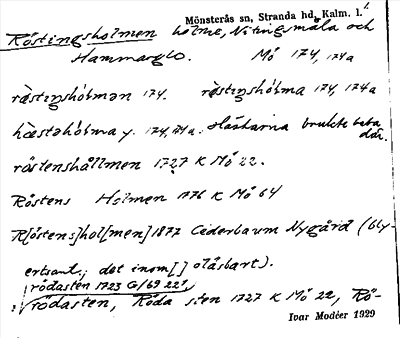 Mönsterås sn, Stranda hd, Kalm. l.
Röstingsholmen holme, Nötingsmåla och
Hammarglo. Mö 174, 174a
rœstiŋshólmən 174. rœstiŋshólma 174, 174a
hœstahólma y. 174, 174a. Hästarna brukte beta
där.
röstenshållmen 1727 K Mö 22.
Röstens Holmen 1776 K Mö 64
R[östens]hol[men] 1877 Cederbaum Nygård (bly-
ertsant.; det inom [] oläsbart).
rödasten 1723 G/69 22¹,
rödasten, Röda sten 1727 K Mö 22, Rö-
Ivar Modéer 1929